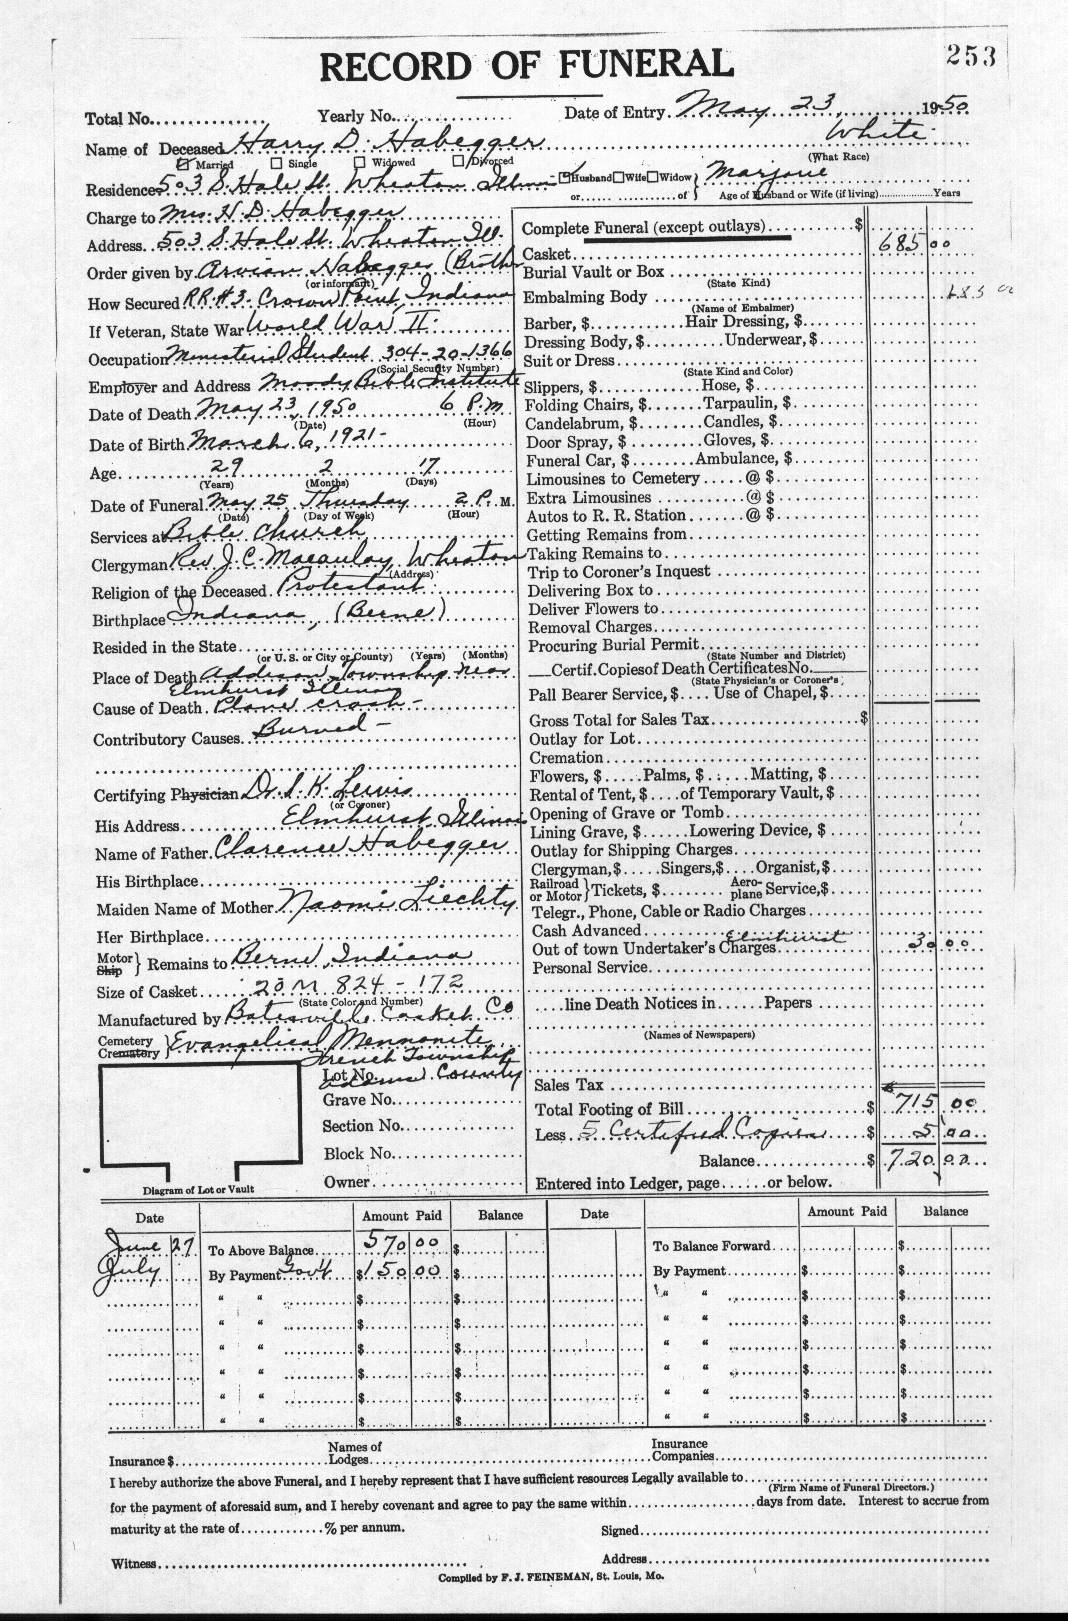 253
RECORD OF FUNERAL
Total No. Yearly No. Date of Entry May 23, 1950
Name of Deceased Harry D. Habegger White
Married Single Widowed Divorced (What Race)
Residence 503 S. Hale St. Wheaton Illinois Husband Wife Widow of Marjorie
or of Age of Husband or Wife (if living) Years
Charge to Mrs. H. D. Habegger
Address 503 S. Hale St. Wheaton Ill.
Order given by Arvian Habegger (Brother
(or informant)
How Secured R.R.#3. Crown Point, Indiana
If Veteran, State War World War II
Occupation Ministerial Student 304-20-1366
(Social Security Number)
Employer and Address Moody Bible Institute
Date of Death May 23, 1950 6 P.M.
(Date) (Hour)
Date of Birth March 6, 1921-
Age 29 2 17
(Years) (Months) (Days)
Date of Funeral May 25, Thursday 2 P. M.
(Date) (Day of Week) (Hour)
Services at Bible Church
Clergyman Rev. J. C. Macaulay Wheaton
(Address)
Religion of the Deceased Protestant
Birthplace Indiana, (Berne)
Resided in the State
(or U. S. or City or County) (Years) (Months)
Place of Death Addison Township near
Elmhurst Illinois
Cause of Death Plane crash-
Contributory Causes Burned-
Certifying Physician Dr. S. K. Lewis
(or Coroner)
His Address Elmhurst, Illinois
Name of Father Clarence Habegger
His Birthplace
Maiden Name of Mother Naomi Liechty
Her Birthplace
Motor
Ship } Remains to Berne, Indiana
Size of Casket 20 M 824-172
(State Color and Number)
Manufactured by Batesville Casket Co
Cemetery
Crematory } Evangelical Mennonite
French Township
Lot No. Adams County
Grave No.
Section No.
Block No.
Owner
Diagram of Lot or Vault
Complete Funeral (except outlays) $
Casket 685 00
Burial Vault or Box
(State Kind)
Embalming Body 685 00
(Name of Embalmer)
Barber, $ Hair Dressing, $
Dressing Body, $ Underwear, $
Suit or Dress
(State Kind and Color)
Slippers, $ Hose, $
Folding Chairs, $ Tarpaulin, $
Candelabrum, $ Candles, $
Door Spray, $ Gloves, $
Funeral Car, $ Ambulance, $
Limousines to Cemetery @ $
Extra Limousines @ $
Autos to R. R. Station @ $
Getting Remains from
Taking Remains to
Trip to Coroner's Inquest
Delivering Box to
Deliver Flowers to
Removal Charges
Procuring Burial Permit
(State Number and District)
Certif. Copies of Death Certificates No.
(State Physician's or Coroner's)
Pall Bearer Service, $ Use of Chapel, $
Gross Total for Sales Tax $
Outlay for Lot
Cremation
Flowers, $ Palms, $ Matting, $
Rental of Tent, $ of Temporary Vault, $
Opening of Grave or Tomb
Lining Grave, $ Lowering Device, $
Outlay for Shipping Charges
Clergyman, $ Singers, $ Organist, $
Railroad
or Motor } Tickets, $ Aero-
plane Service, $
Telegr., Phone, Cable or Radio Charges
Cash Advanced
Out of town Undertaker's Charges Elmhurst 30 00
Personal Service
line Death Notices in Papers
(Names of Newspapers)
Sales Tax
Total Footing of Bill $ 715 00
Less 5 Certified Copies $ 5 00
Balance $ 720 00
Entered into Ledger, page or below.
Date Amount Paid Balance Date Amount Paid Balance
June 27 To Above Balance 570 00 $ To Balance Forward $
July By Payment Gov't $ 150 00 $ By Payment $ $
“ “ $ $ “ “ $ $
“ “ $ $ “ “ $ $
“ “ $ $ “ “ $ $
“ “ $ $ “ “ $ $
“ “ $ $ “ “ $ $
“ “ $ $ “ “ $ $
Insurance $ Names of
Lodges Insurance
Companies
I hereby authorize the above Funeral, and I hereby represent that I have sufficient resources Legally available to
(Firm Name of Funeral Directors.)
for the payment of aforesaid sum, and I hereby covenant and agree to pay the same within days from date. Interest to accrue from
maturity at the rate of % per annum. Signed
Witness Address
Compiled by F. J. FEINEMAN, St. Louis, Mo.